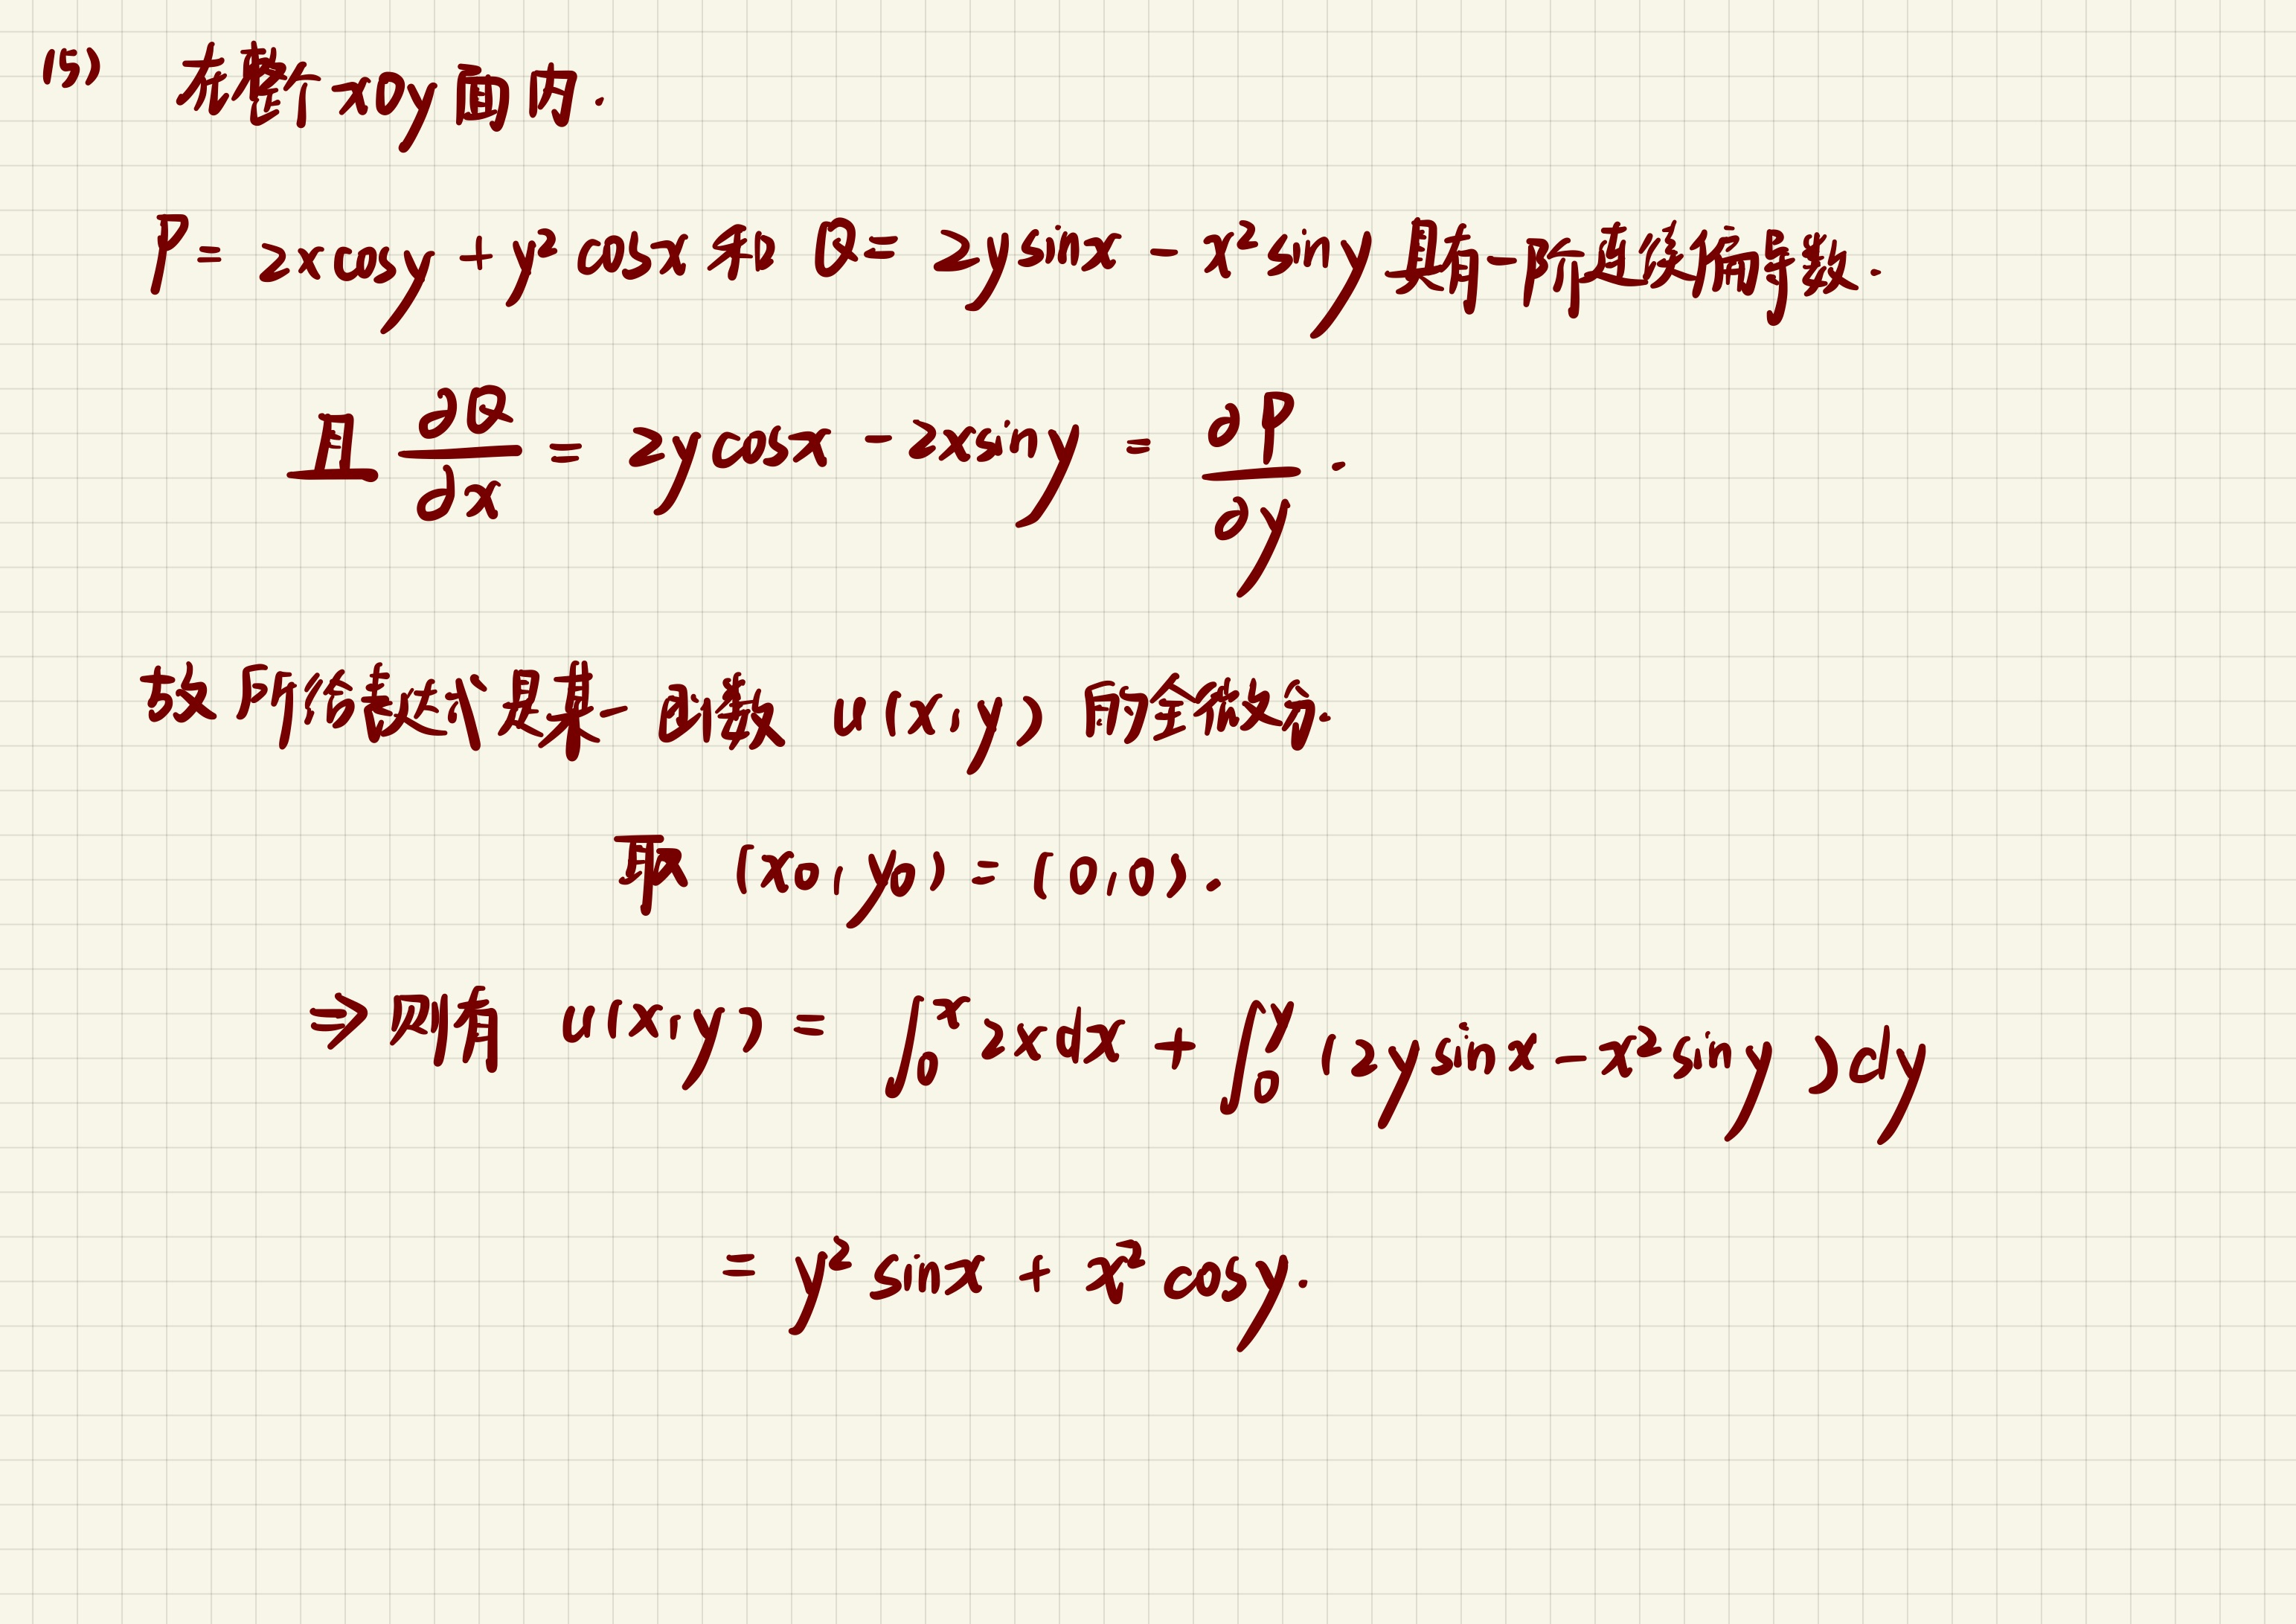 (5) 在整个xoy面内.
P = 2xcosy + y² cosx 和 Q = 2ysinx - x²siny 具有一阶连续偏导数.
且 ∂Q/∂x = 2ycosx - 2xsiny = ∂P/∂y.
故所给表达式是某一函数 u(x,y) 的全微分.
取 (x0, y0) = (0,0).
⇒ 则有 u(x,y) = ∫₀ˣ 2xdx + ∫₀ʸ (2ysinx - x²siny)dy
= y² sinx + x² cosy.